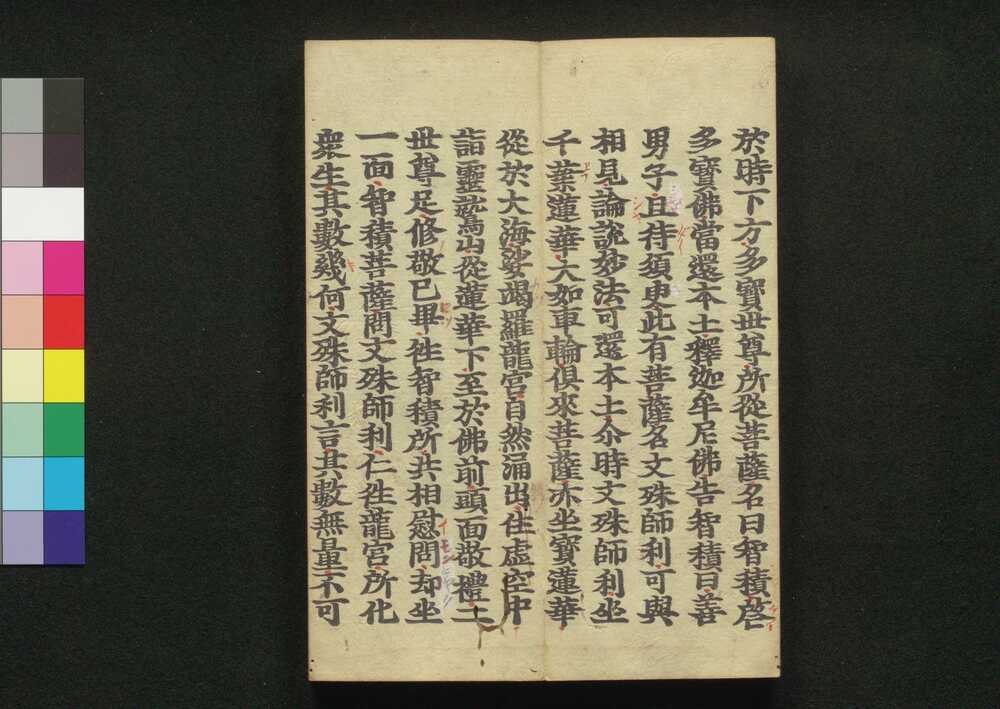 於時下方多寳世尊所從菩薩名曰智積啓
多寳佛當還本土釋迦牟尼佛告智積曰善
男子且待須臾此有菩薩名文殊師利可與
相見論說妙法可還本土尒時文殊師利坐
千葉蓮華大如車輪俱來菩薩亦坐寳蓮華
從於大海娑竭羅龍宮自然涌出住虛空中
詣靈鷲山從蓮華下至於佛前頭面敬禮二
世尊足修敬已畢徃智積所共相慰問却坐
一面智積菩薩問文殊師利仁徃龍宮所化
衆生其數幾何文殊師利言其數無量不可